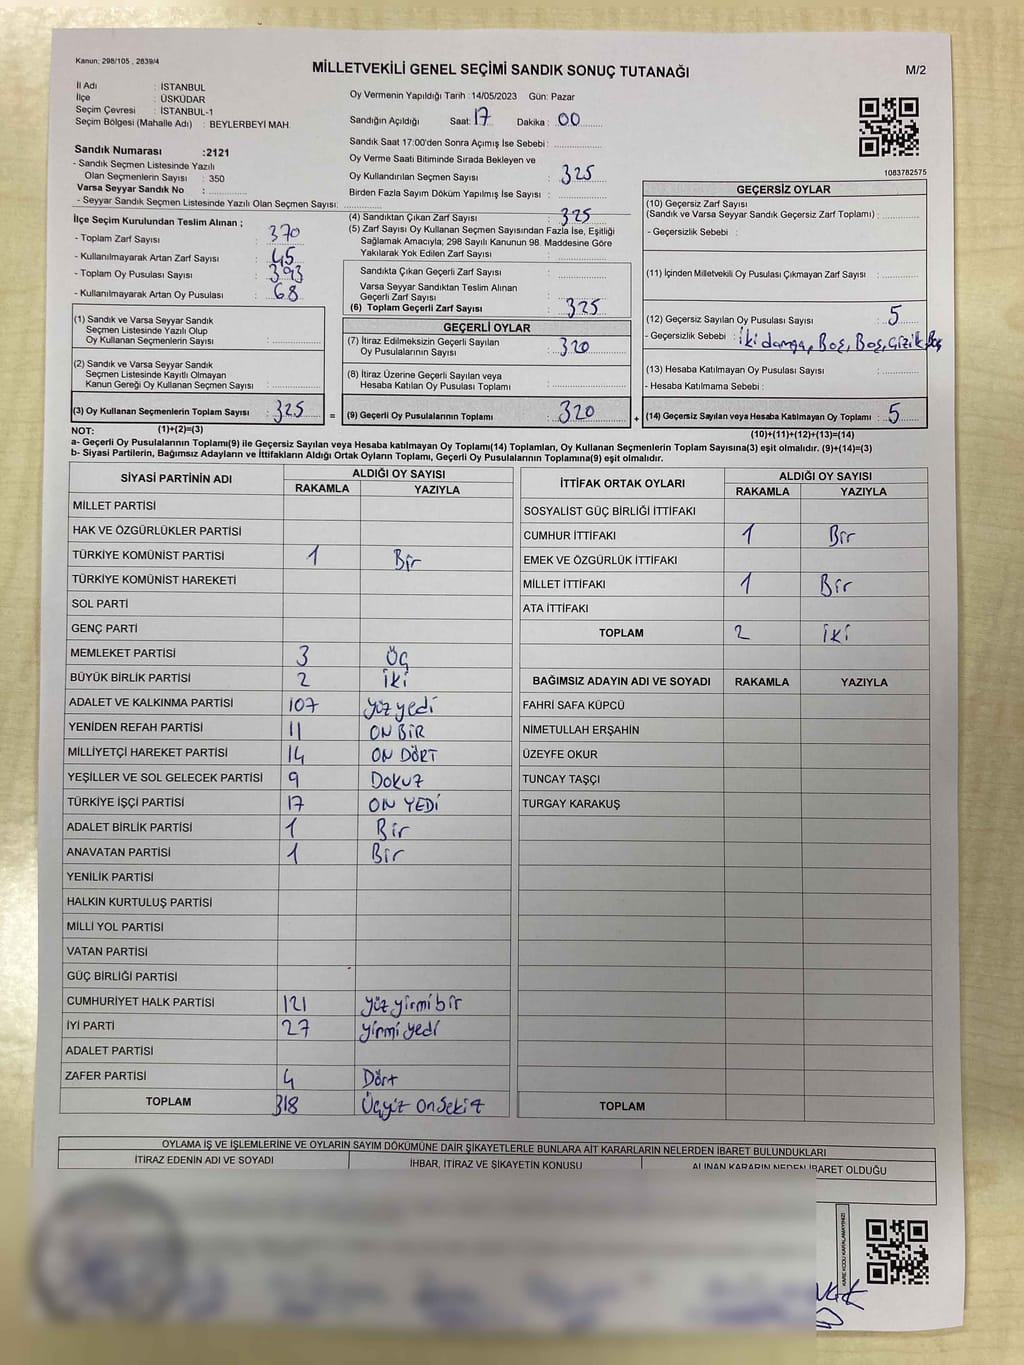 Kanun: 298/105 , 2839/4
MİLLETVEKİLİ GENEL SEÇİMİ SANDIK SONUÇ TUTANAĞI
M/2
İl Adı : İSTANBUL
İlçe : ÜSKÜDAR
Seçim Çevresi : İSTANBUL-1
Seçim Bölgesi (Mahalle Adı) : BEYLERBEYİ MAH.
Sandık Numarası :2121
- Sandık Seçmen Listesinde Yazılı
Olan Seçmenlerin Sayısı : 350
Varsa Seyyar Sandık No :
- Seyyar Sandık Seçmen Listesinde Yazılı Olan Seçmen Sayısı:
Oy Vermenin Yapıldığı Tarih :14/05/2023 Gün: Pazar
Sandığın Açıldığı Saat: 17 Dakika : 00
Sandık Saat 17:00'den Sonra Açımış İse Sebebi :
Oy Verme Saati Bitiminde Sırada Bekleyen ve
Oy Kullandırılan Seçmen Sayısı : 325
Birden Fazla Sayım Döküm Yapılmış İse Sayısı :
1083782575
İlçe Seçim Kurulundan Teslim Alınan ;
- Toplam Zarf Sayısı : 370
- Kullanılmayarak Artan Zarf Sayısı : 45
- Toplam Oy Pusulası Sayısı : 393
- Kullanılmayarak Artan Oy Pusulası : 68
(1) Sandık ve Varsa Seyyar Sandık
Seçmen Listesinde Yazılı Olup
Oy Kullanan Seçmenlerin Sayısı :
(2) Sandık ve Varsa Seyyar Sandık
Seçmen Listesinde Kayıtlı Olmayan
Kanun Gereği Oy Kullanan Seçmen Sayısı :
(3) Oy Kullanan Seçmenlerin Toplam Sayısı : 325
(4) Sandıktan Çıkan Zarf Sayısı : 325
(5) Zarf Sayısı Oy Kullanan Seçmen Sayısından Fazla İse, Eşitliği
Sağlamak Amacıyla; 298 Sayılı Kanunun 98. Maddesine Göre
Yakılarak Yok Edilen Zarf Sayısı :
Sandıkta Çıkan Geçerli Zarf Sayısı :
Varsa Seyyar Sandıktan Teslim Alınan
Geçerli Zarf Sayısı :
(6) Toplam Geçerli Zarf Sayısı : 325
GEÇERLİ OYLAR
(7) İtiraz Edilmeksizin Geçerli Sayılan
Oy Pusulalarının Sayısı : 320
(8) İtiraz Üzerine Geçerli Sayılan veya
Hesaba Katılan Oy Pusulası Toplamı :
= (9) Geçerli Oy Pusulalarının Toplamı : 320 +
GEÇERSİZ OYLAR
(10) Geçersiz Zarf Sayısı
(Sandık ve Varsa Seyyar Sandık Geçersiz Zarf Toplamı) :
- Geçersizlik Sebebi :
(11) İçinden Milletvekili Oy Pusulası Çıkmayan Zarf Sayısı :
(12) Geçersiz Sayılan Oy Pusulası Sayısı : 5
- Geçersizlik Sebebi : İki damga, Boş, Boş, Çizik Boş
(13) Hesaba Katılmayan Oy Pusulası Sayısı :
- Hesaba Katılmama Sebebi :
(14) Geçersiz Sayılan veya Hesaba Katılmayan Oy Toplamı : 5
NOT: (1)+(2)=(3)
(10)+(11)+(12)+(13)=(14)
a- Geçerli Oy Pusulalarının Toplamı(9) ile Geçersiz Sayılan veya Hesaba katılmayan Oy Toplamı(14) Toplamları, Oy Kullanan Seçmenlerin Toplam Sayısına(3) eşit olmalıdır. (9)+(14)=(3)
b- Siyasi Partilerin, Bağımsız Adayların ve İttifakların Aldığı Ortak Oyların Toplamı, Geçerli Oy Pusulalarının Toplamına(9) eşit olmalıdır.
SİYASİ PARTİNİN ADI ALDIĞI OY SAYISI
RAKAMLA YAZIYLA
MİLLET PARTİSİ
HAK VE ÖZGÜRLÜKLER PARTİSİ
TÜRKİYE KOMÜNİST PARTİSİ 1 Bir
TÜRKİYE KOMÜNİST HAREKETİ
SOL PARTİ
GENÇ PARTİ
MEMLEKET PARTİSİ 3 Üç
BÜYÜK BİRLİK PARTİSİ 2 İki
ADALET VE KALKINMA PARTİSİ 107 Yüz yedi
YENİDEN REFAH PARTİSİ 11 ON BİR
MİLLİYETÇİ HAREKET PARTİSİ 14 ON DÖRT
YEŞİLLER VE SOL GELECEK PARTİSİ 9 DOKUZ
TÜRKİYE İŞÇİ PARTİSİ 17 ON YEDİ
ADALET BİRLİK PARTİSİ 1 Bir
ANAVATAN PARTİSİ 1 Bir
YENİLİK PARTİSİ
HALKIN KURTULUŞ PARTİSİ
MİLLİ YOL PARTİSİ
VATAN PARTİSİ
GÜÇ BİRLİĞİ PARTİSİ
CUMHURİYET HALK PARTİSİ 121 Yüz yirmi bir
İYİ PARTİ 27 Yirmi yedi
ADALET PARTİSİ
ZAFER PARTİSİ 4 Dört
TOPLAM 318 Üçyüz Onsekiz
İTTİFAK ORTAK OYLARI ALDIĞI OY SAYISI
RAKAMLA YAZIYLA
SOSYALİST GÜÇ BİRLİĞİ İTTİFAKI
CUMHUR İTTİFAKI 1 Bir
EMEK VE ÖZGÜRLÜK İTTİFAKI
MİLLET İTTİFAKI 1 Bir
ATA İTTİFAKI
TOPLAM 2 İki
BAĞIMSIZ ADAYIN ADI VE SOYADI RAKAMLA YAZIYLA
FAHRİ SAFA KÜPCÜ
NİMETULLAH ERŞAHİN
ÜZEYFE OKUR
TUNCAY TAŞÇI
TURGAY KARAKUŞ
TOPLAM
OYLAMA İŞ VE İŞLEMLERİNE VE OYLARIN SAYIM DÖKÜMÜNE DAİR ŞİKAYETLERLE BUNLARA AİT KARARLARIN NELERDEN İBARET BULUNDUKLARI
İTİRAZ EDENİN ADI VE SOYADI İHBAR, İTİRAZ VE ŞİKAYETİN KONUSU ALINAN KARARIN NEDEN İBARET OLDUĞU
KARE KODU KARALAMAYINIZ!